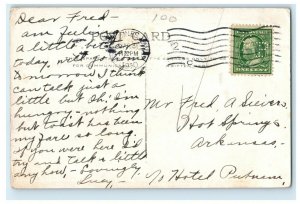 Dear Fred -
100
am feeling
a little better
today, will go home
tomorrow I think
can talk just a
little but Oh! I'm
hungry - nothing
but toast has been
my fare so long.
if you were here I'd
try and talk a little
any how, - Lovingly
Lucy -
POST CARD
ONE CENT
Mr. Fred A Seivers
Hot Springs,
Arkansas. -
c/o Hotel Putnam